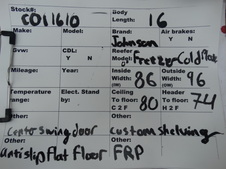 Stock#: CO11610 Body Length: 16
Make: Model: Brand: Johnson Air brakes: Y N
Gvw: CDL: Y N Reefer Model: Freezer Cold Plate
Mileage: Year: Inside Width: 86 Outside Width: 96
Temperature range: Elect. Stand by: Ceiling To floor: C 2 F 80 Header To floor: H 2 F 74
Other: Center swing door Other: custom shelving
Other: Antislip flat floor Other: FRP